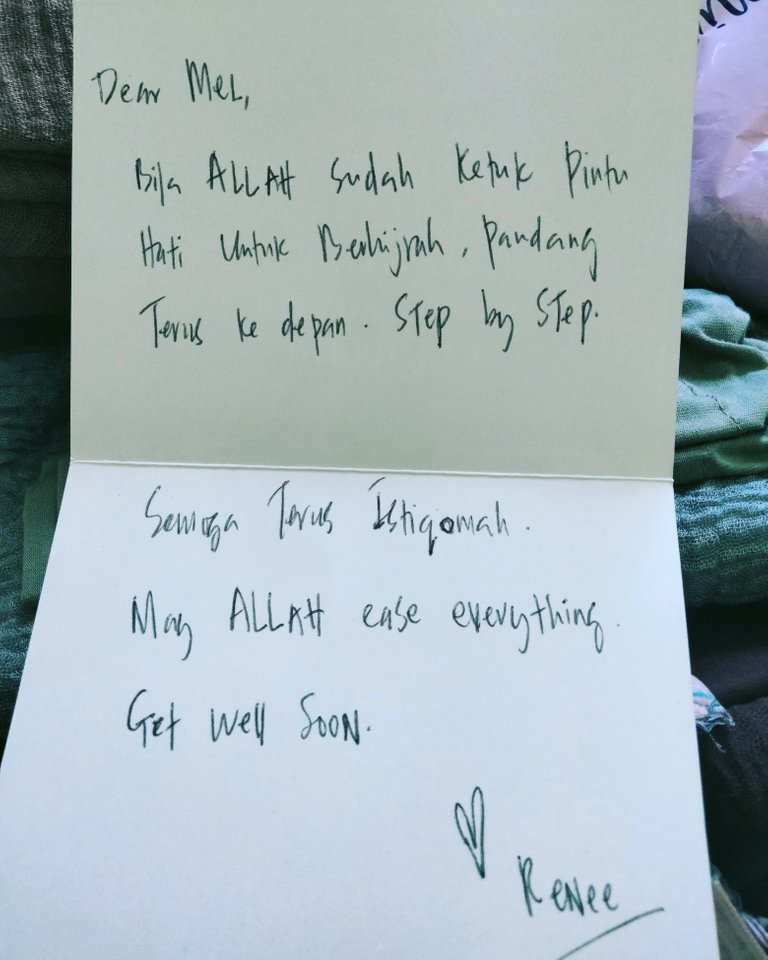 Dear Mel,
Bila ALLAH sudah Ketuk Pintu
Hati Untuk Berhijrah, pandang
Terus ke depan. Step by Step.
Semoga Terus Istiqomah.
May ALLAH ease everything.
Get Well Soon.
Renee